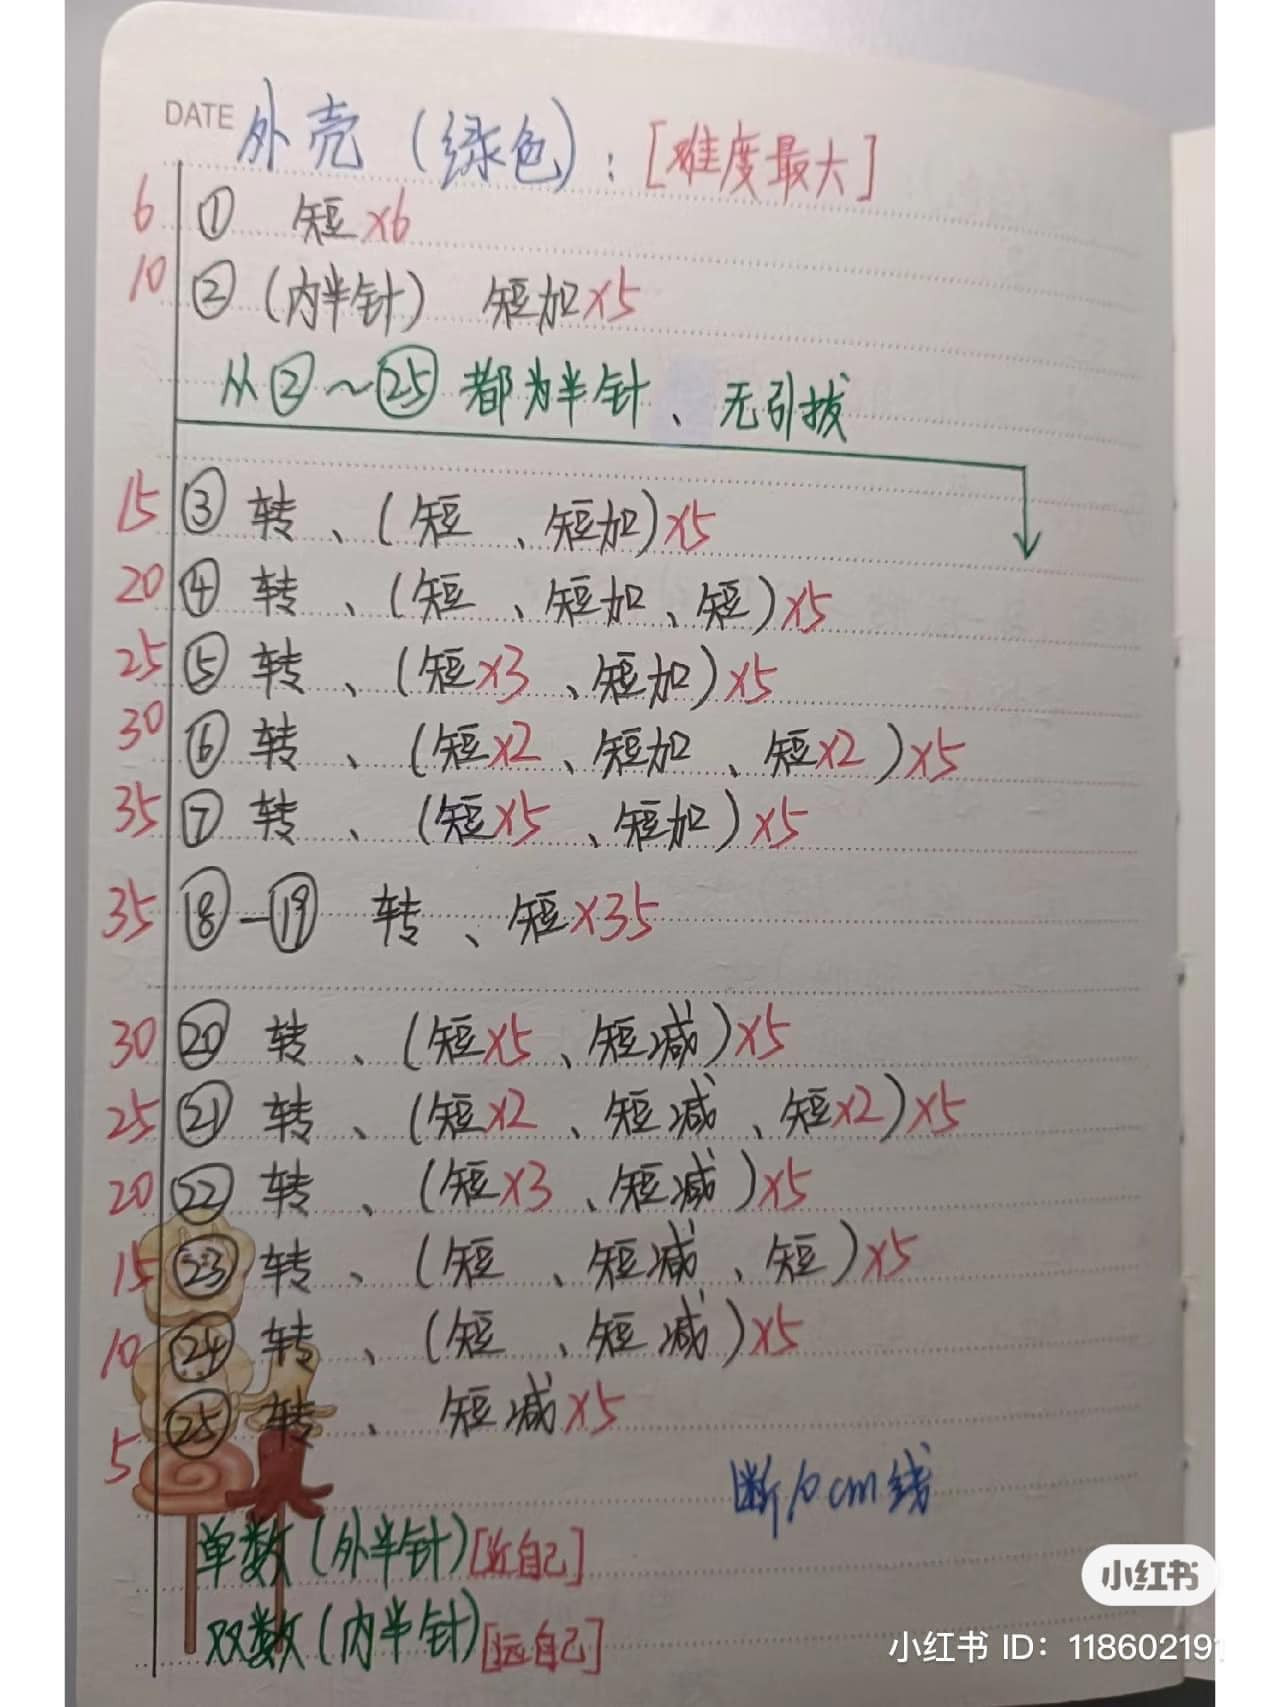 DATE 外壳（绿色）：[难度最大]
6 ① 短×6
10 ②（内半针） 短加×5
从②～㉕都为半针、无引拔
15 ③ 转、（短、短加）×5
20 ④ 转、（短、短加、短）×5
25 ⑤ 转、（短×3、短加）×5
30 ⑥ 转、（短×2、短加、短×2）×5
35 ⑦ 转、（短×5、短加）×5
35 ⑱—⑲ 转、短×35
30 ⑳ 转、（短×5、短减）×5
25 ㉑ 转、（短×2、短减、短×2）×5
20 ㉒ 转、（短×3、短减）×5
15 ㉓ 转、（短、短减、短）×5
10 ㉔ 转、（短、短减）×5
5 ㉕ 转、短减×5
断10cm线
单数（外半针）[近自己]
双数（内半针）[远自己]
小红书
小红书 ID：118602191